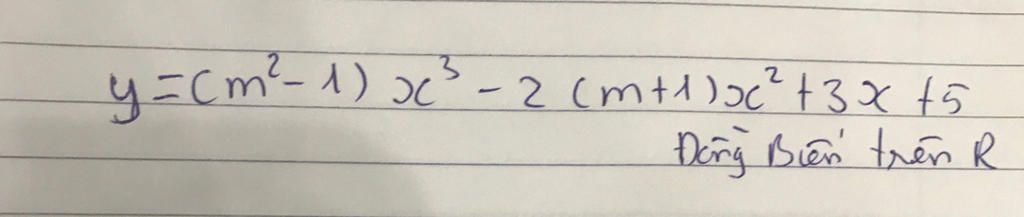 y = (m² - 1) x³ - 2 (m+1)x² + 3x + 5
Đồng Biến trên R